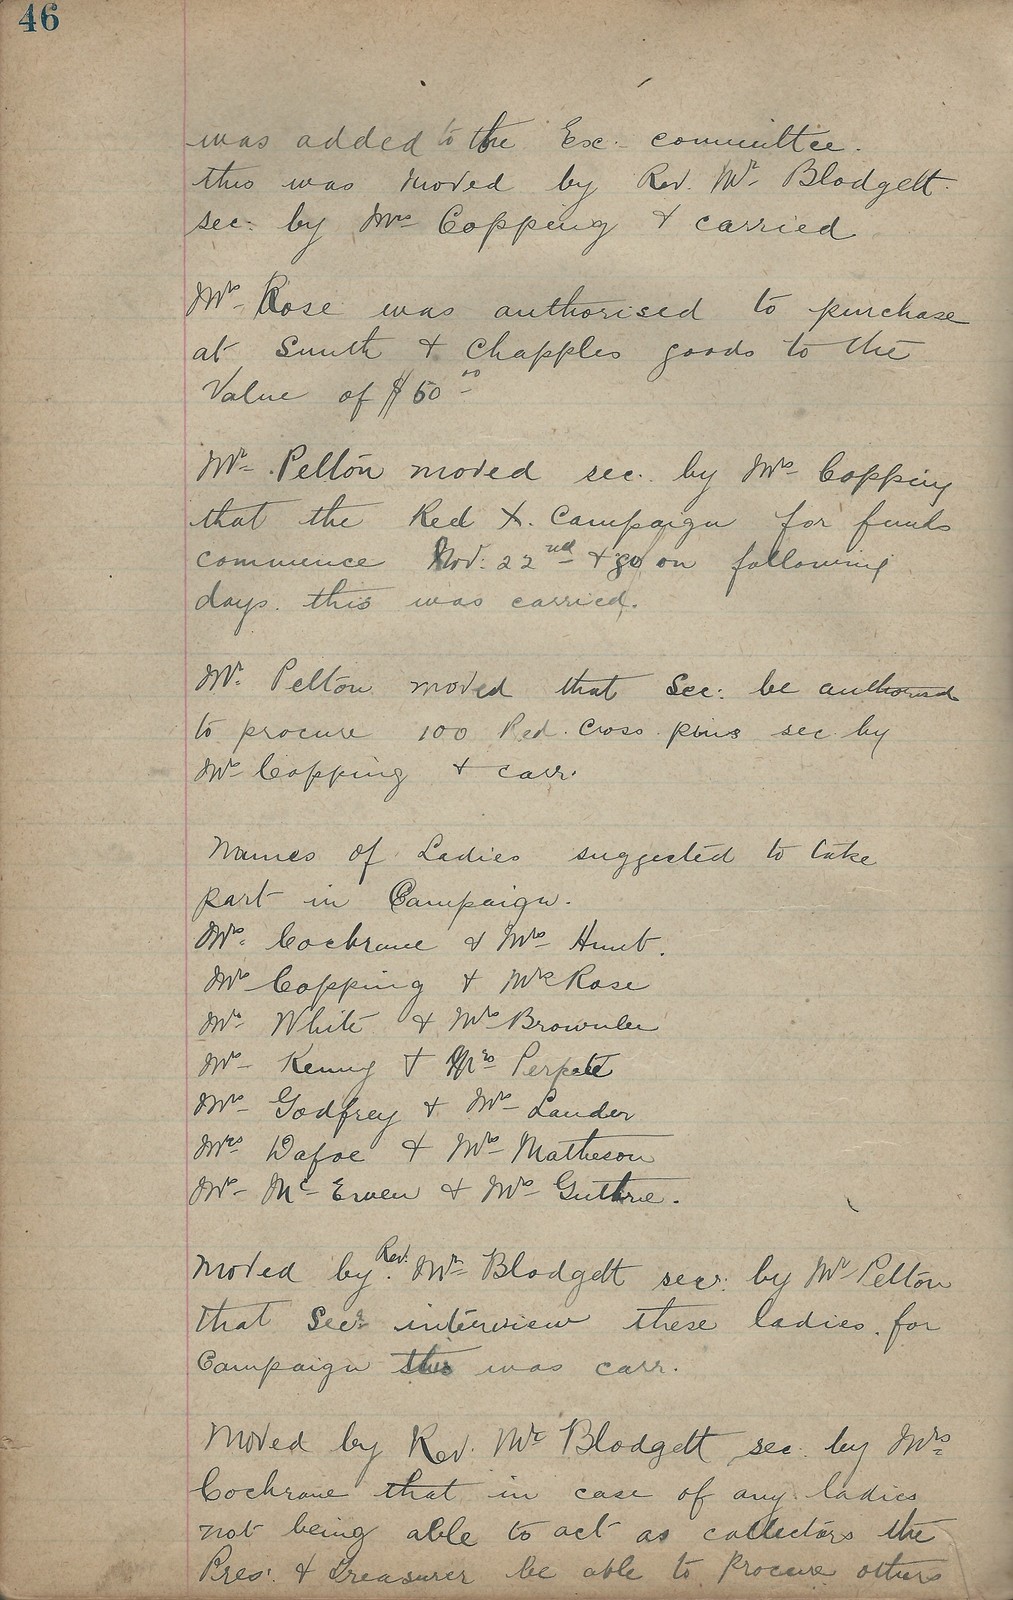 46
was added to the Exc. committee.
this was moved by Rev. Mr. Blodgett.
sec. by Mrs Copping & carried
Mrs. Rose was authorised to purchase
at Smith & Chapples goods to the
Value of $50 00
Mr. Pelton moved sec. by Mrs Copping
that the Red X. Campaign for funds
commence Nov. 22nd & go on following
days. this was carried.
Mr. Pelton moved that Sec. be authorised
to procure 100 Red. Cross pins sec by
Mrs Copping & carr.
Names of Ladies suggested to take
part in Campaign.
Mrs. Cochrane & Mrs Hunt.
Mrs Copping & Mrs Rose
Mrs. White & Mrs Brownlee
Mrs Kenny & Mrs Perpete
Mrs Godfrey & Mrs Lander
Mrs Dafoe & Mrs Matheson
Mrs Mc Ewen & Mrs Guthrie.
Moved by Rev. Mr. Blodgett sec. by Mr Pelton
that Sec. interview these ladies for
Campaign this was carr.
Moved by Rev. Mr Blodgett sec. by Mrs
Cochrane that in case of any ladies
not being able to act as collectors the
Pres. & Treasurer be able to procure others